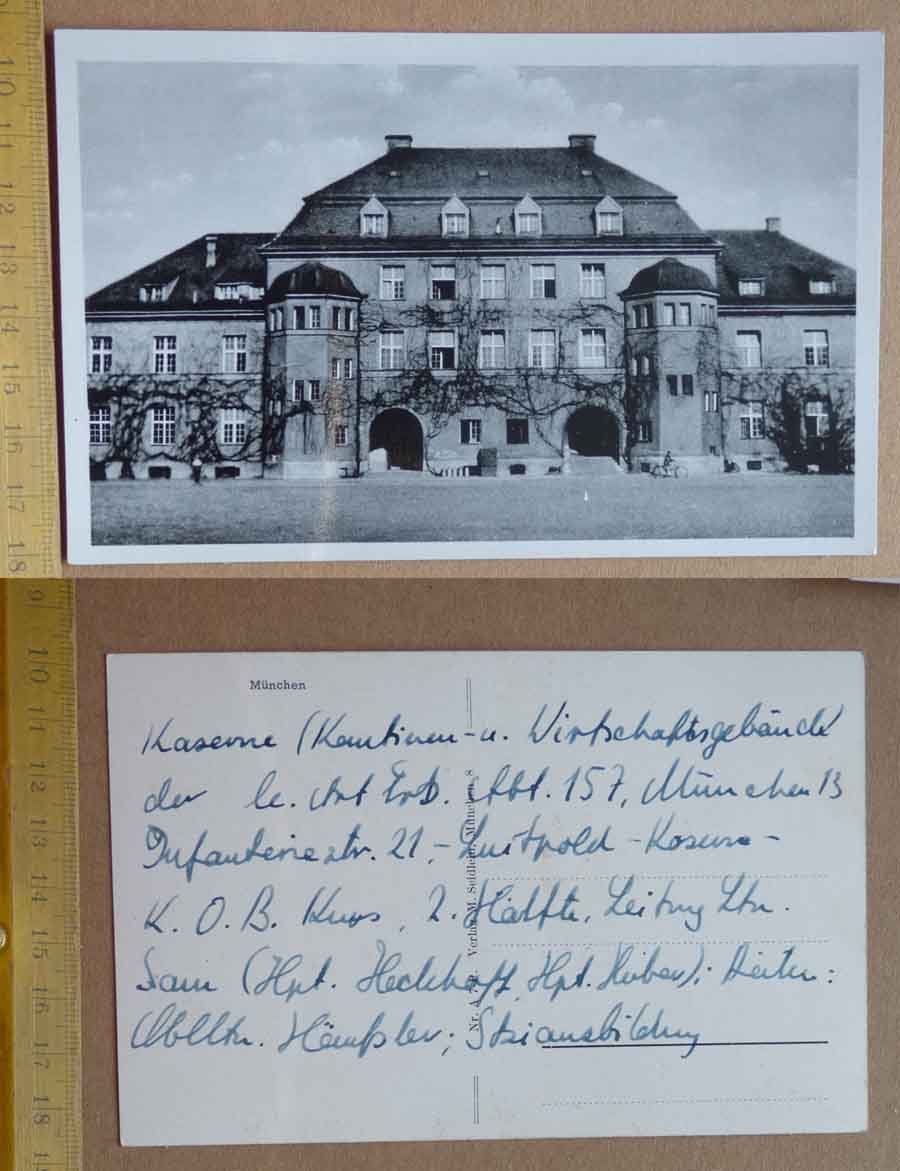 10
11
12
13
14
15
16
17
18
9
10
11
12
13
14
15
16
17
18
München
Kaserne (Kantinen- u. Wirtschaftsgebäude
der le. Art. Ers. Abt. 157, München 13
Infanteriestr. 21, - Luitpold - Kaserne -
K. O. B. Kurs, 2. Hälfte, Leitung Ltn.
(Hpt. Heckhoff, Hpt. Huber);
Oblltn. Hämßler;
Verlag M. Seidlein, München 8
Nr. A